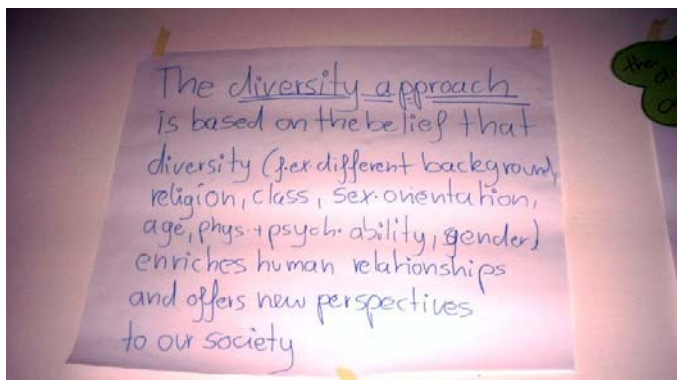 The diversity approach
is based on the belief that
diversity (f.ex. different background,
religion, class, sex. orientation,
age, phys. + psych. ability, gender)
enriches human relationships
and offers new perspectives
to our society
the